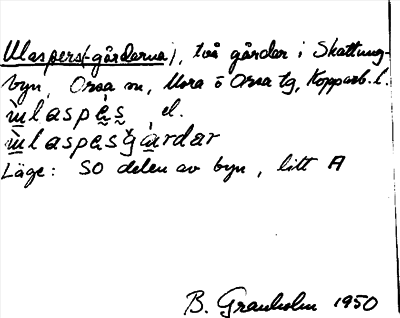 Ulaspers(-gårdarna), två gårdar i Skattung-
byn, Orsa sn, Mora o Orsa tg, Kopparb. l.
el.
Läge: SO delen av byn, litt A
B. Granholm 1950